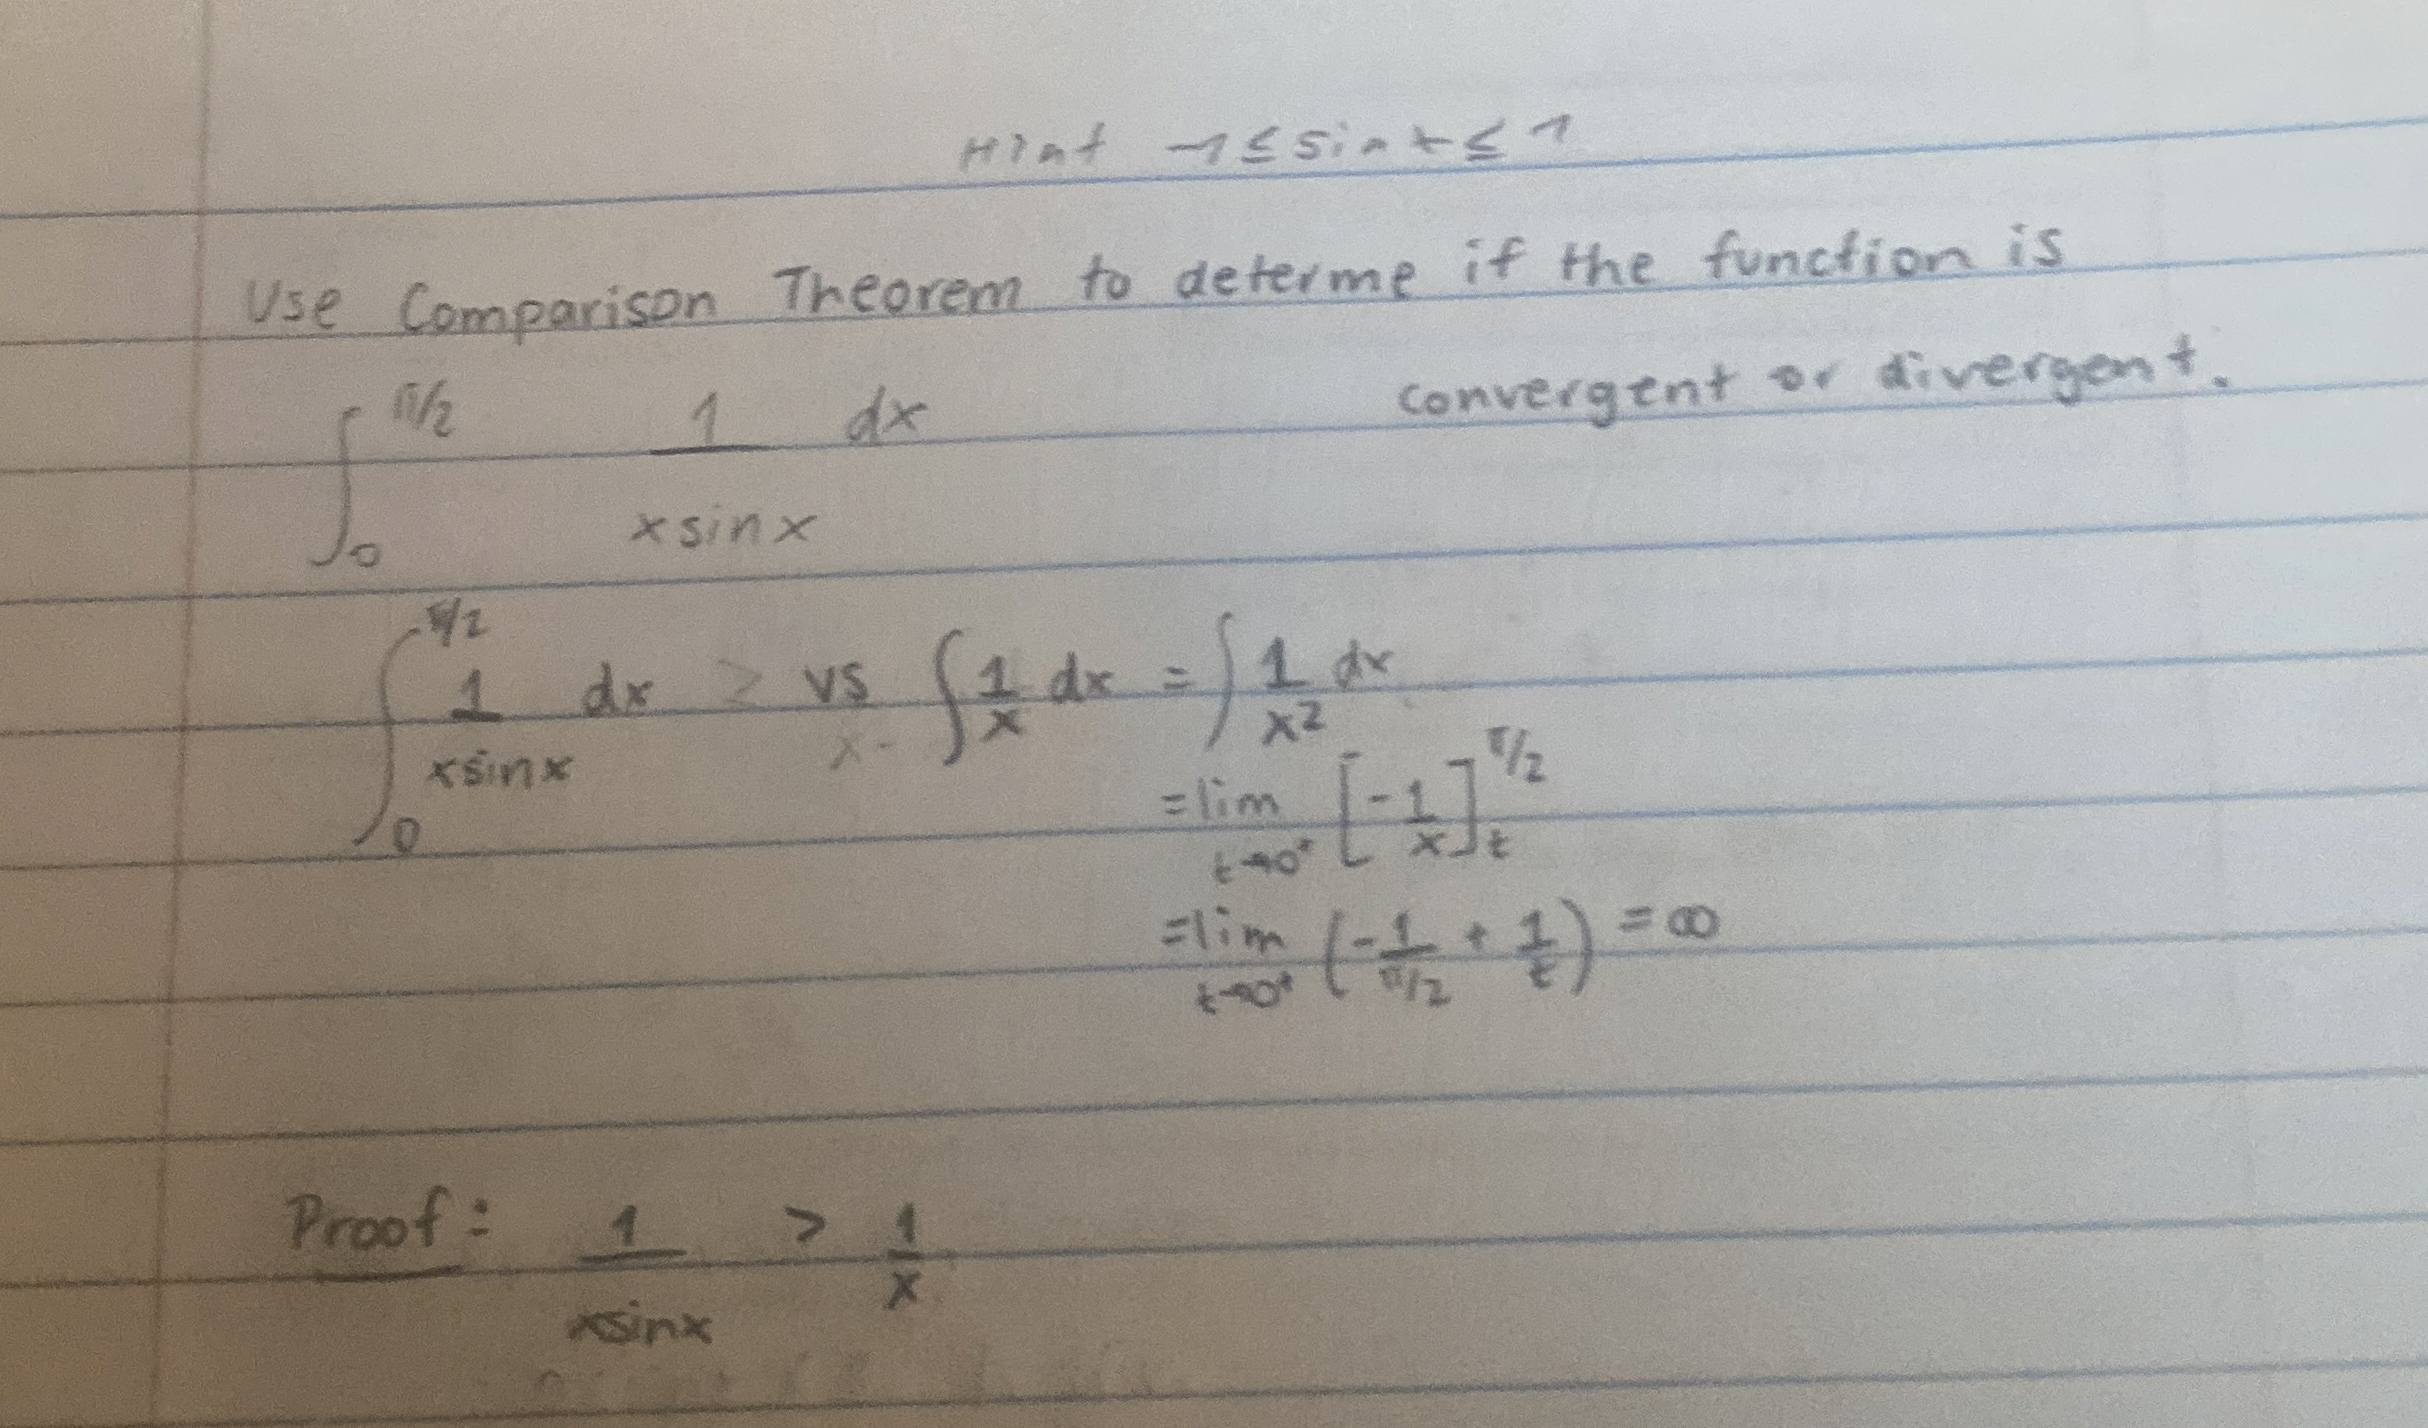 Hint -1 ≤ sin x ≤ 1
Use Comparison Theorem to determe if the function is
convergent or divergent.
∫₀^π/2 1/(x sin x) dx
∫₀^π/2 1/(x sin x) dx ≥ vs ∫ 1/x dx = ∫ 1/x² dx
= lim t→0⁺ [-1/x]ₜ^π/2
= lim t→0⁺ (-1/(π/2) + 1/t) = ∞
Proof: 1/(x sin x) > 1/x